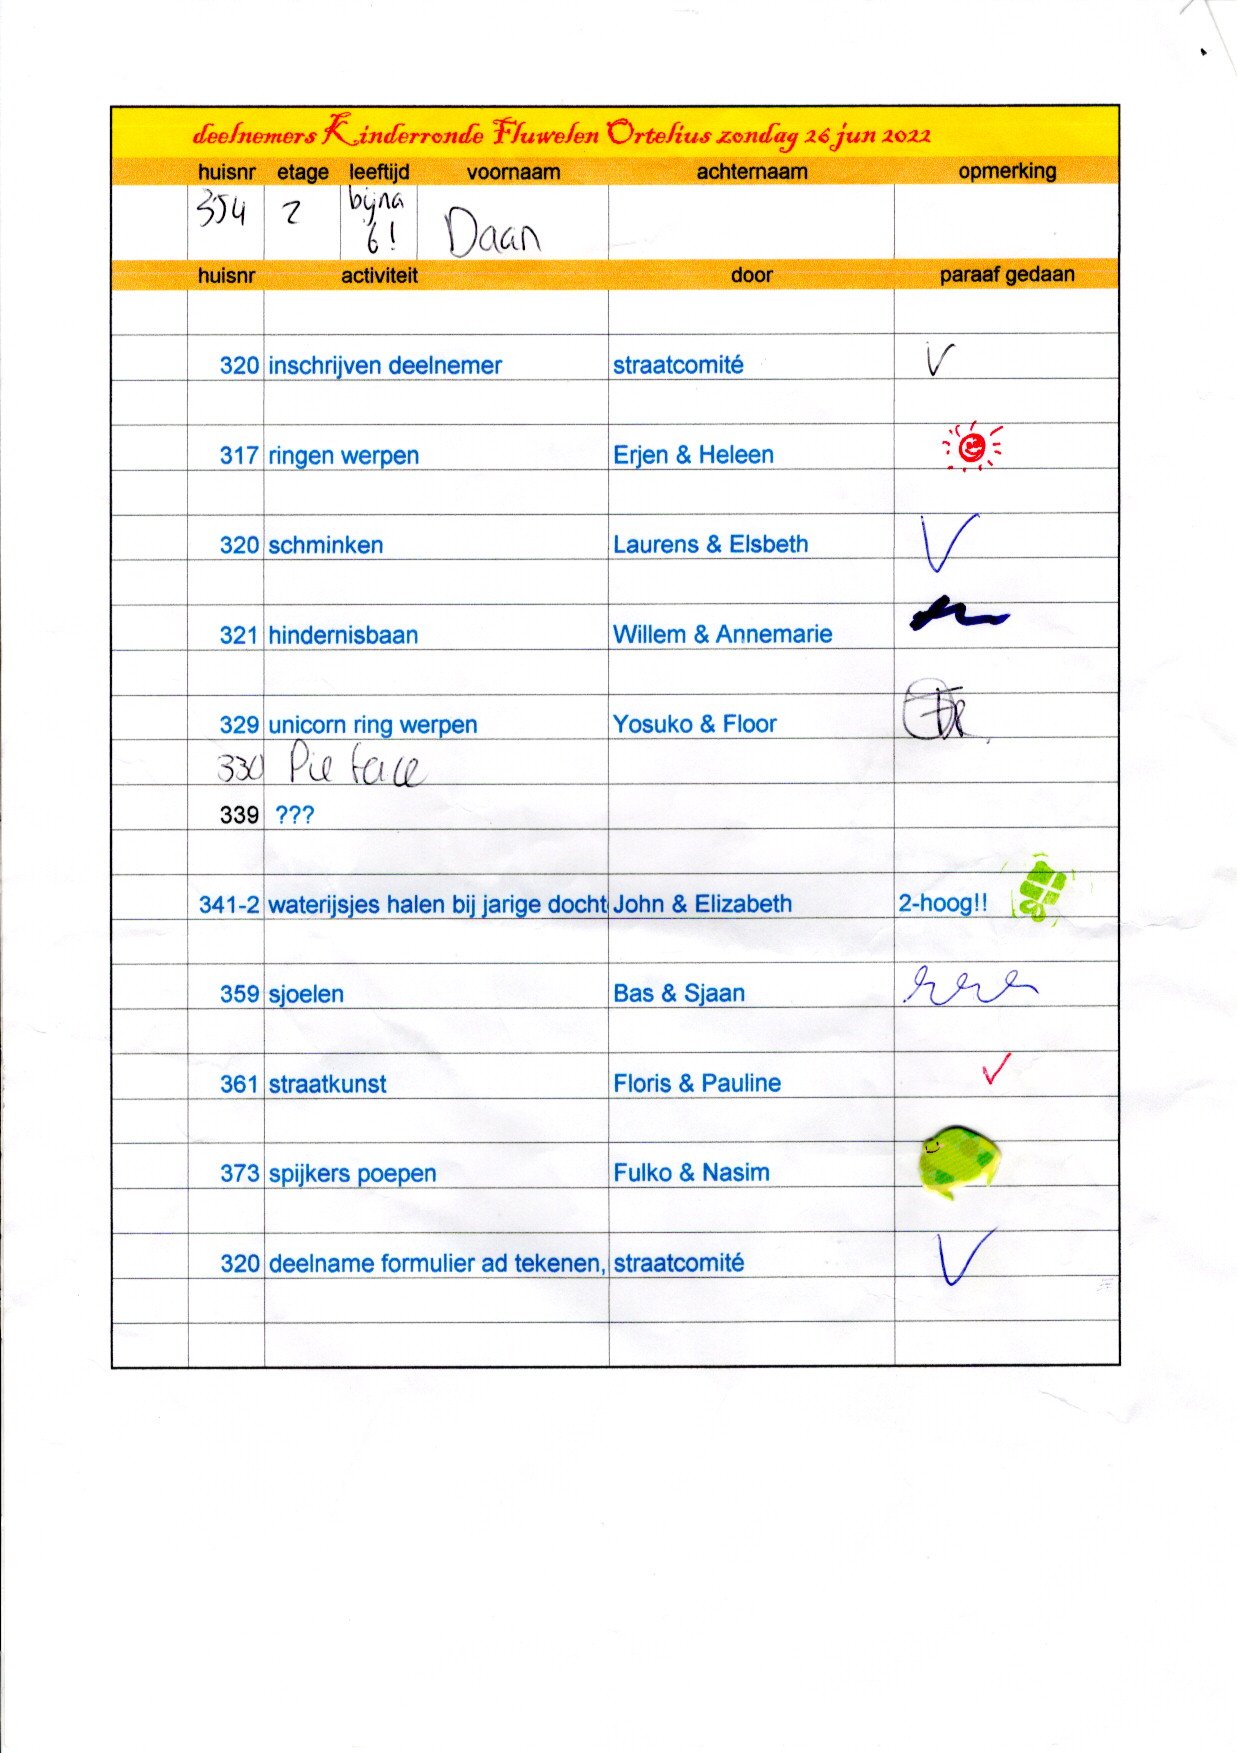 deelnemers Kinderronde Fluwelen Ortelius zondag 26 jun 2022
huisnr etage leeftijd voornaam achternaam opmerking
354 2 bijna 6! Daan
huisnr activiteit door paraaf gedaan
320 inschrijven deelnemer straatcomité
317 ringen werpen Erjen & Heleen
320 schminken Laurens & Elsbeth
321 hindernisbaan Willem & Annemarie
329 unicorn ring werpen Yosuko & Floor
330 Pie face
339 ???
341-2 waterijsjes halen bij jarige docht John & Elizabeth 2-hoog!!
359 sjoelen Bas & Sjaan
361 straatkunst Floris & Pauline
373 spijkers poepen Fulko & Nasim
320 deelname formulier ad tekenen, straatcomité